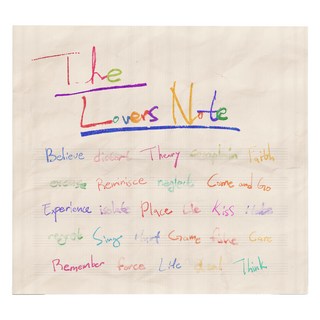 The
Lovers Note
Believe discard Theory complain Faith
excuse Reminisce neglect Come and Go
Experience isolate Place Lie Kiss Hate
regret Sings Hurt Game fake Care
Remember force Life Think